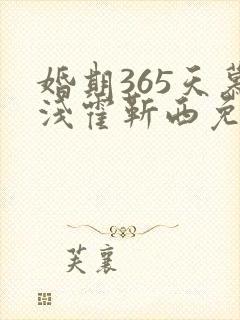 婚期365天慕
浅霍靳西免
芙襄